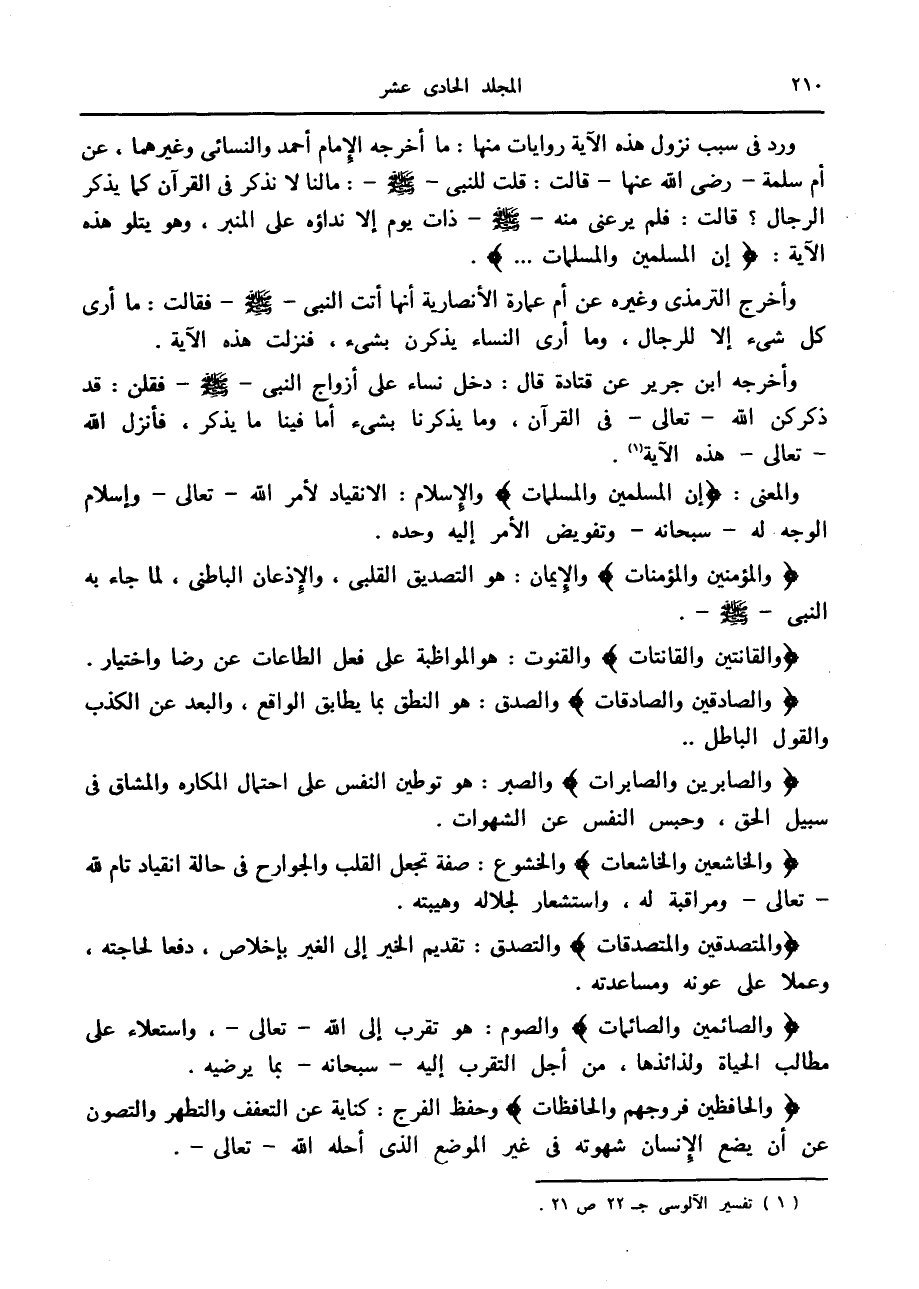 ٢١٠ المجلد الحادى عشر
ورد فى سبب نزول هذه الآية روايات منها : ما أخرجه الإمام أحمد والنسائى وغيرهما ، عن
أم سلمة - رضى الله عنها - قالت : قلت للنبى - ﷺ - : مالنا لا نذكر فى القرآن كما يذكر
الرجال ؟ قالت : فلم يرعنى منه - ﷺ - ذات يوم إلا نداؤه على المنبر ، وهو يتلو هذه
الآية : ﴿ إن المسلمين والمسلمات ... ﴾ .
وأخرج الترمذى وغيره عن أم عمارة الأنصارية أنها أتت النبى - ﷺ - فقالت : ما أرى
كل شىء إلا للرجال ، وما أرى النساء يذكرن بشىء ، فنزلت هذه الآية .
وأخرجه ابن جرير عن قتادة قال : دخل نساء على أزواج النبى - ﷺ - فقلن : قد
ذكركن الله - تعالى - فى القرآن ، وما يذكرنا بشىء أما فينا ما يذكر ، فأنزل الله
- تعالى - هذه الآية(١) .
والمعنى : ﴿إن المسلمين والمسلمات ﴾ والإسلام : الانقياد لأمر الله - تعالى - وإسلام
الوجه له - سبحانه - وتفويض الأمر إليه وحده .
﴿ والمؤمنين والمؤمنات ﴾ والإيمان : هو التصديق القلبى ، والإذعان الباطنى ، لما جاء به
النبى - ﷺ - .
﴿والقانتين والقانتات ﴾ والقنوت : هوالمواظبة على فعل الطاعات عن رضا واختيار .
﴿ والصادقين والصادقات ﴾ والصدق : هو النطق بما يطابق الواقع ، والبعد عن الكذب
والقول الباطل ..
﴿ والصابرين والصابرات ﴾ والصبر : هو توطين النفس على احتمال المكاره والمشاق فى
سبيل الحق ، وحبس النفس عن الشهوات .
﴿ والخاشعين والخاشعات ﴾ والخشوع : صفة تجعل القلب والجوارح فى حالة انقياد تام لله
- تعالى - ومراقبة له ، واستشعار لجلاله وهيبته .
﴿والمتصدقين والمتصدقات ﴾ والتصدق : تقديم الخير إلى الغير بإخلاص ، دفعا لحاجته ،
وعملا على عونه ومساعدته .
﴿ والصائمين والصائمات ﴾ والصوم : هو تقرب إلى الله - تعالى - ، واستعلاء على
مطالب الحياة ولذائذها ، من أجل التقرب إليه - سبحانه - بما يرضيه .
﴿ والحافظين فروجهم والحافظات ﴾ وحفظ الفرج : كناية عن التعفف والتطهر والتصون
عن أن يضع الإنسان شهوته فى غير الموضع الذى أحله الله - تعالى - .
( ١ ) تفسير الآلوسى جـ ٢٢ ص ٢١ .